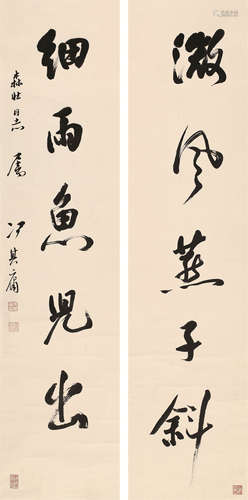 微风燕子斜
细雨鱼儿出
森林同志属
冯其庸